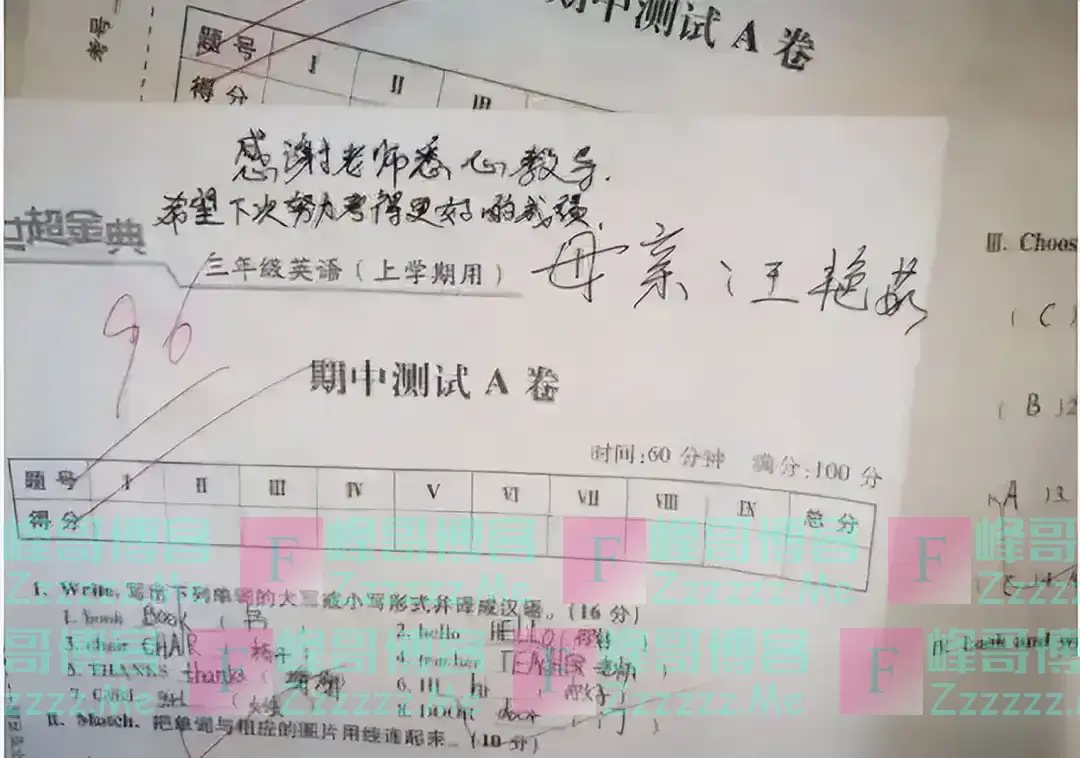 考号
期中测试 A 卷
题 号 I II III
得 分
感谢老师悉心教导.
希望下次努力考得更好的成绩.
超金典
三年级英语(上学期用)
母亲:汪艳茹
96
期中测试 A 卷
时间:60 分钟 满分:100 分
题 号 I II III IV V VI VII VIII IX 总 分
得 分
I. Write. 写出下列单词的大写或小写形式并译成汉语。(16 分)
1. book BOOK ( 书 )
2. hello HELLO ( 你好 )
3. chair CHAIR ( 椅子 )
4. teacher TEAHER 老师 )
5. THANKS thanks (
6. HI hi ( 你好 )
7. GIRL girl ( 女孩
8. DOOR door ( 门 )
II. Match. 把单词与相应的图片用线连起来。(10 分)
III. Choos
( C )
( B ) 2
A ) 3
C
峰哥博客
Zzzzzz.Me
F 峰哥博客
Zzzzzz.Me
F 峰哥博客
Zzzzzz.Me
F 峰哥
Zzzzzz
哥博客
Zzzzzz.Me
F 峰哥博客
Zzzzzz.Me
F 峰哥博客
Zzzzzz.Me
F 峰哥博
Zzzzzz.M